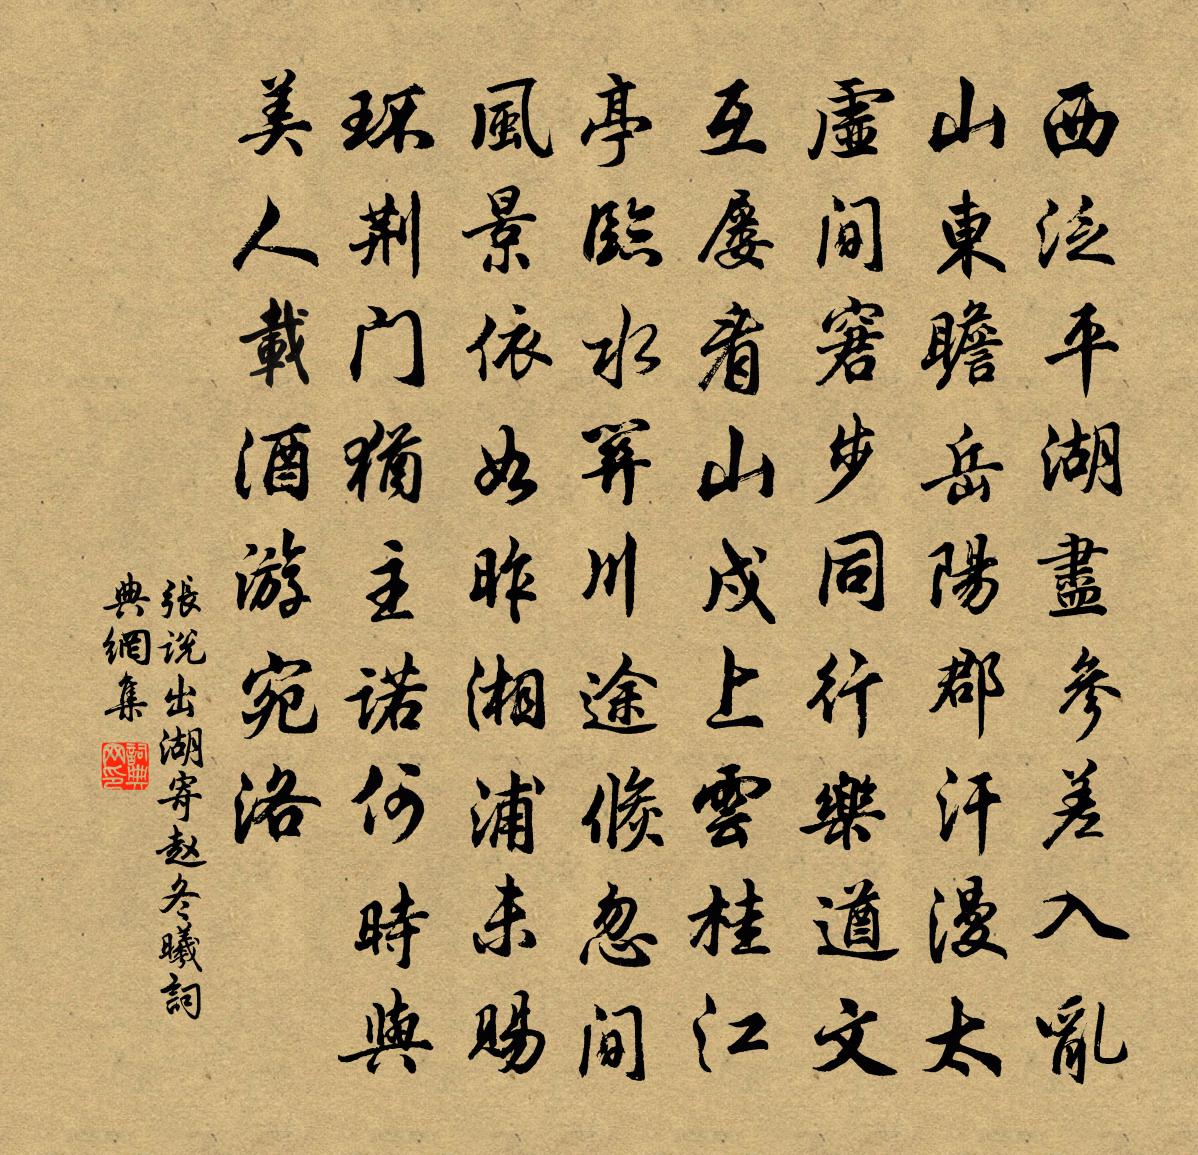 西泛平湖盡參差入亂
山東瞻岳陽郡汗漫太
虛間窘步同行樂遒文
互屢看山戍上雲桂江
亭臨水關川途倏忽間
風景依如昨湘浦未賜
环荆門猶主諾何時與
美人載酒游宛洛
張説出湖寄赵冬曦詞
典網集
詞典网印